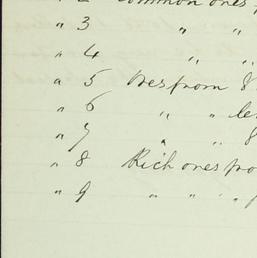 " 2 Common ones f
" 3 " "
" 4 " "
" 5 Ores from 8
" 6 " " le
" 7 " " 8
" 8 Rich ones fro
" 9 " " " f